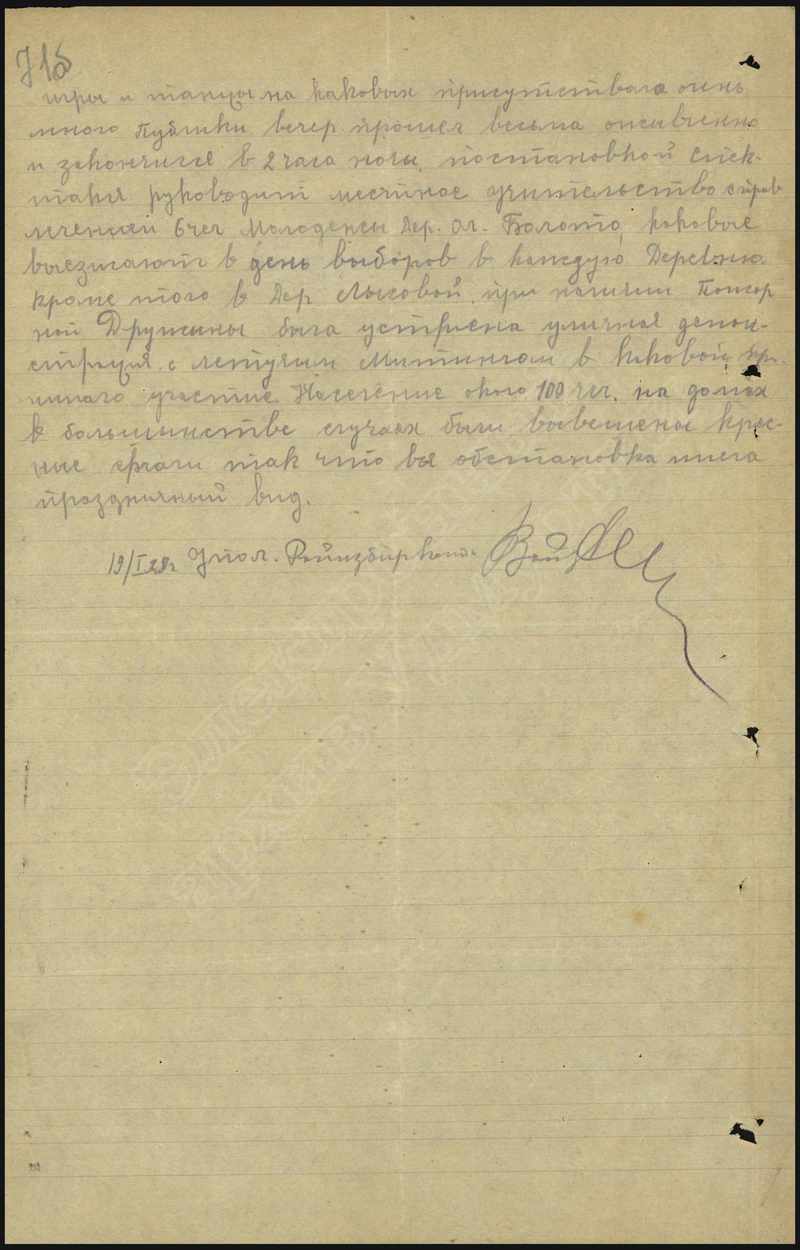 715
игры и танцы на каковых присутствовала очень
много Публики вечер прошел весьма оживленно
и закончился в 2 часа ночи, постановкой спек-
такля руководит месчтное учительство с прив
лечением 6 чел Молодежи Дер. Ол. Болото, каковые
выезжают в день выборов в каждую Деревню.
кроме того в Дер Лысовой, при наличии Пожар
ной Дружины была устроена уличная демон-
страция с летучим Митингом в каковой при-
нимало участие Население около 100 чел. на домах
в большинстве случаях были вывешеное крас-
ные флаги так что вся обстановка имела
праздничный вид.
19/I 29г Упол. Райизбиркома
Электронный
архив